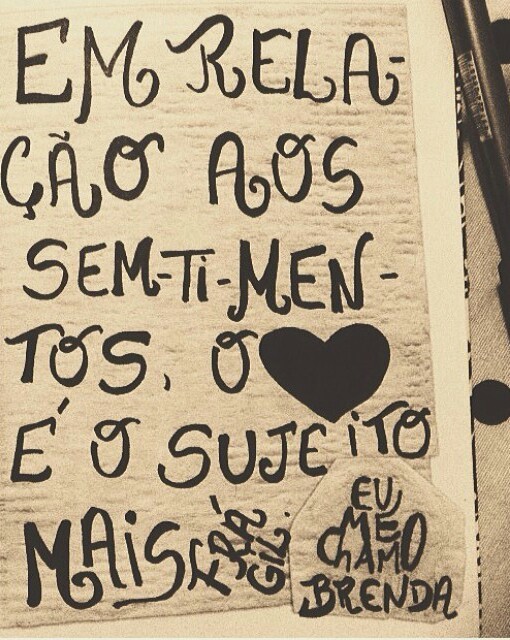 EM RELA-
ÇÃO AOS
SEM-Ti-MEN-
TOS, O ♥
É O SUJEiTO
MAiS FRÁGIL.
EU
ME
CHAMO
BRENDA